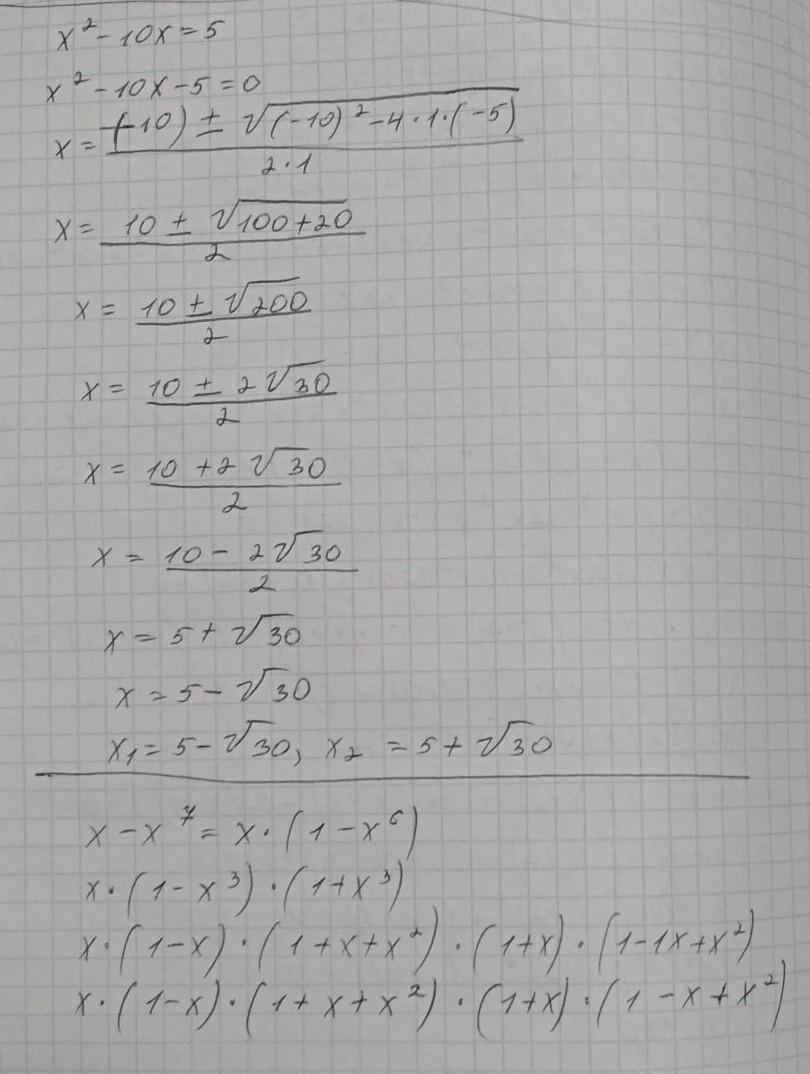 x² - 10x = 5
x² - 10x - 5 = 0
x = (-(-10) ± √((-10)² - 4·1·(-5))) / (2·1)
x = (10 ± √(100+20)) / 2
x = (10 ± √200) / 2
x = (10 ± 2√30) / 2
x = (10 + 2√30) / 2
x = (10 - 2√30) / 2
x = 5 + √30
x = 5 - √30
x₁ = 5 - √30, x₂ = 5 + √30
x - x⁷ = x·(1 - x⁶)
x·(1 - x³)·(1 + x³)
x·(1-x)·(1+x+x²)·(1+x)·(1-1x+x²)
x·(1-x)·(1+x+x²)·(1+x)·(1-x+x²)